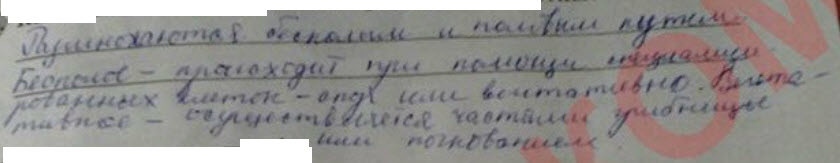 Размножаются бесполым и половым путём.
Бесполое – происходит при помощи специализи-
рованных клеток – спор или вегетативно. Вегета-
тивное – осуществляется частями грибницы
или почкованием.